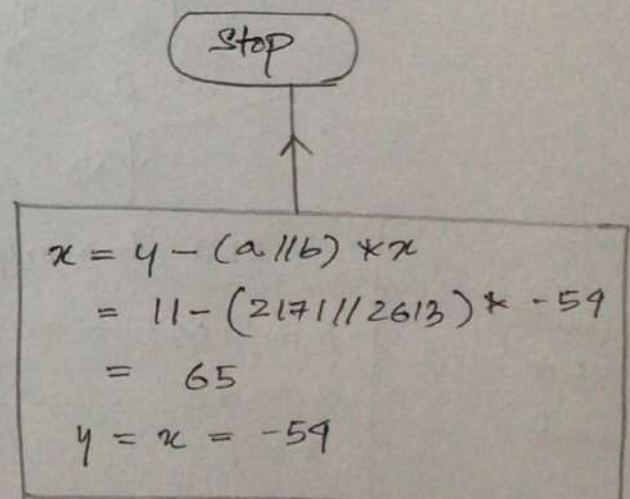 Stop
x = y - (a//b) * x
= 11 - (2171//2613) * -54
= 65
y = x = -54